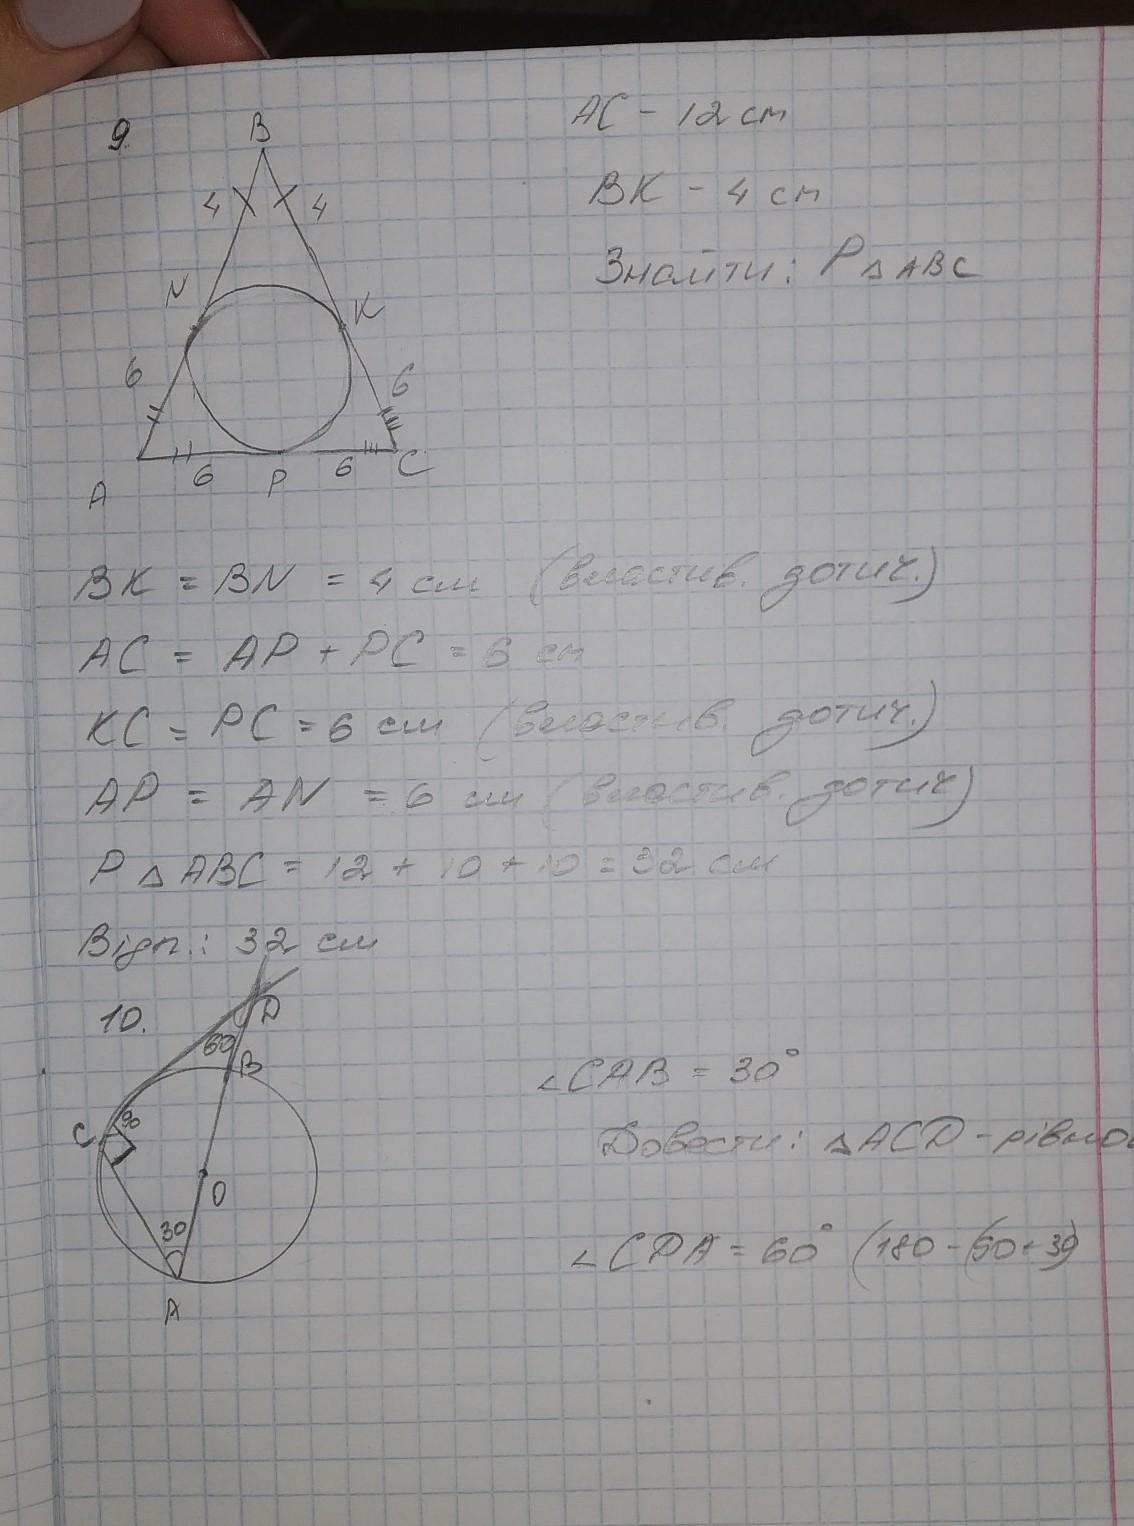 9.
B
4 4
N
K
6
6
6
6
A
P
C
AC - 12 см
BK - 4 см
Знайти: P△ABC
BK = BN = 4 см (властив. дотич.)
AC = AP + PC = 6 см
KC = PC = 6 см (властив. дотич.)
AP = AN = 6 см (властив. дотич)
P△ABC = 12 + 10 + 10 = 32 см
Відп.: 32 см
10.
D
60
B
C
90
O
30
A
∠CAB = 30°
Довести: △ACD - рівно
∠CDA = 60° (180 - (90 + 30)